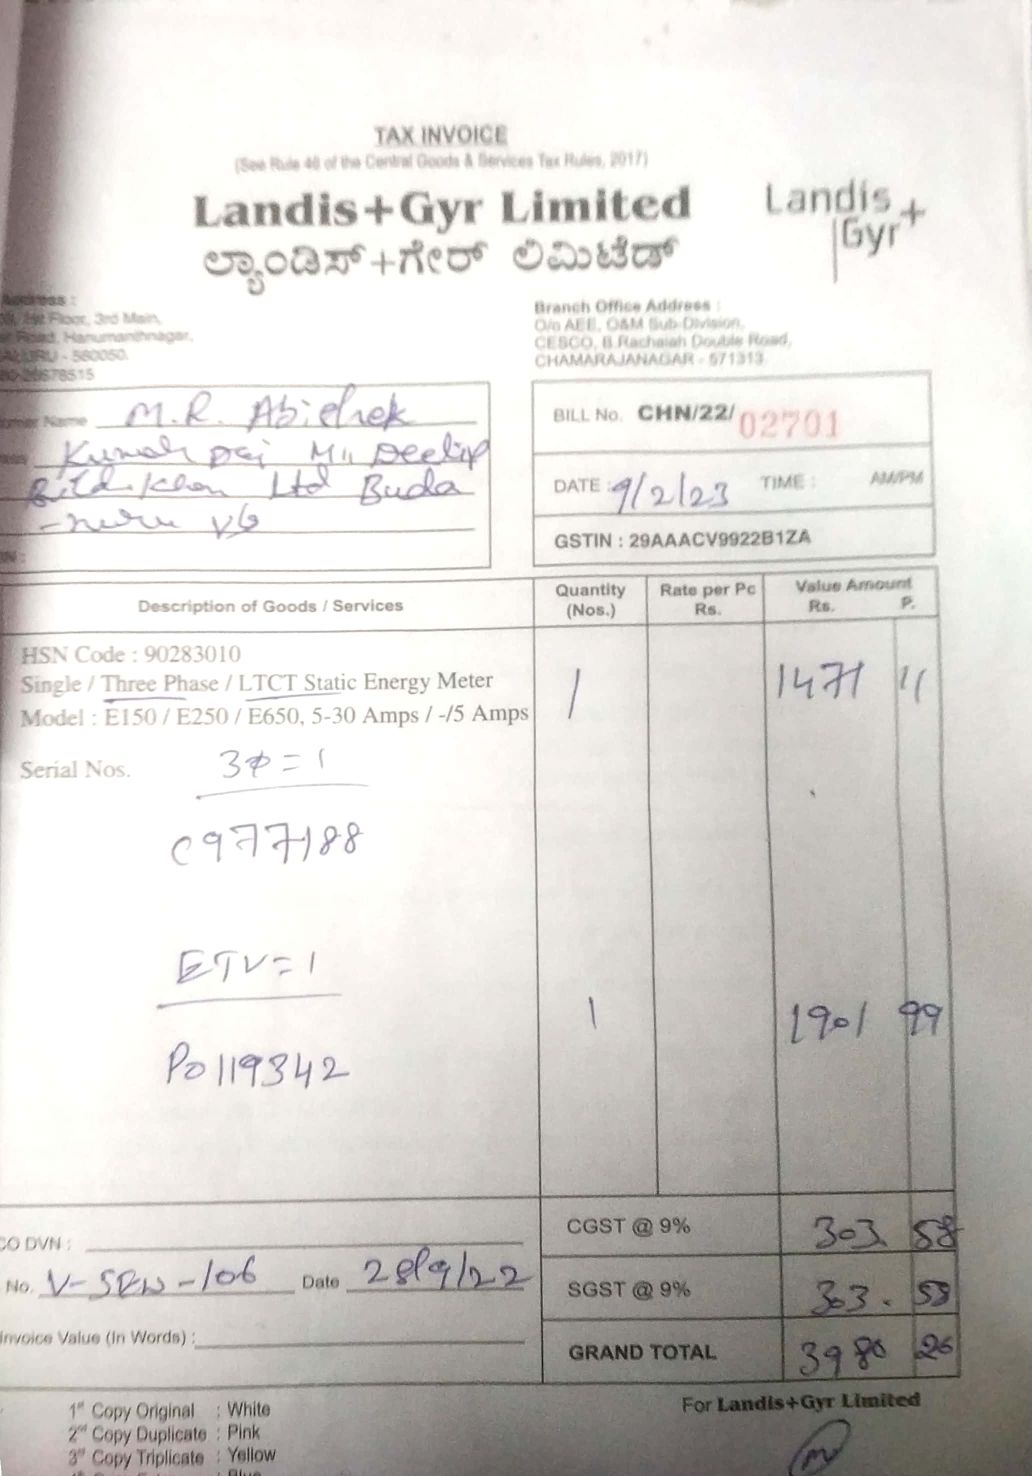 TAX INVOICE
(See Rule 46 of the Central Goods & Services Tax Rules, 2017)
Landis+Gyr Limited
ಲ್ಯಾಂಡಿಸ್+ಗೇರ್ ಲಿಮಿಟೆಡ್
Landis
Gyr+
Address :
1st Floor, 3rd Main,
Road, Hanumanthnagar,
- 560050.
26678515
Branch Office Address :
O/o AEE, O&M Sub-Division,
CESCO, B.Rachaiah Double Road,
CHAMARAJANAGAR - 571313.
Name M.R. Abishek
Kumar
Ltd Buda
BILL No. CHN/22/ 02701
DATE : 9/2/23 TIME : AM/PM
GSTIN : 29AAACV9922B1ZA
Description of Goods / Services
Quantity (Nos.)
Rate per Pc Rs.
Value Amount
Rs. P.
HSN Code : 90283010
Single / Three Phase / LTCT Static Energy Meter
Model : E150 / E250 / E650, 5-30 Amps / -/5 Amps
1 1471 11
Serial Nos. 3ф = 1
C977188
ETV = 1
1 1901 99
P0119342
CGST @ 9% 303. 58
DVN :
No. V-SRN-106 Date 28/9/22
SGST @ 9% 303. 58
Invoice Value (In Words) :
GRAND TOTAL 3980 26
1st Copy Original : White
2nd Copy Duplicate : Pink
3rd Copy Triplicate : Yellow
For Landis+Gyr Limited